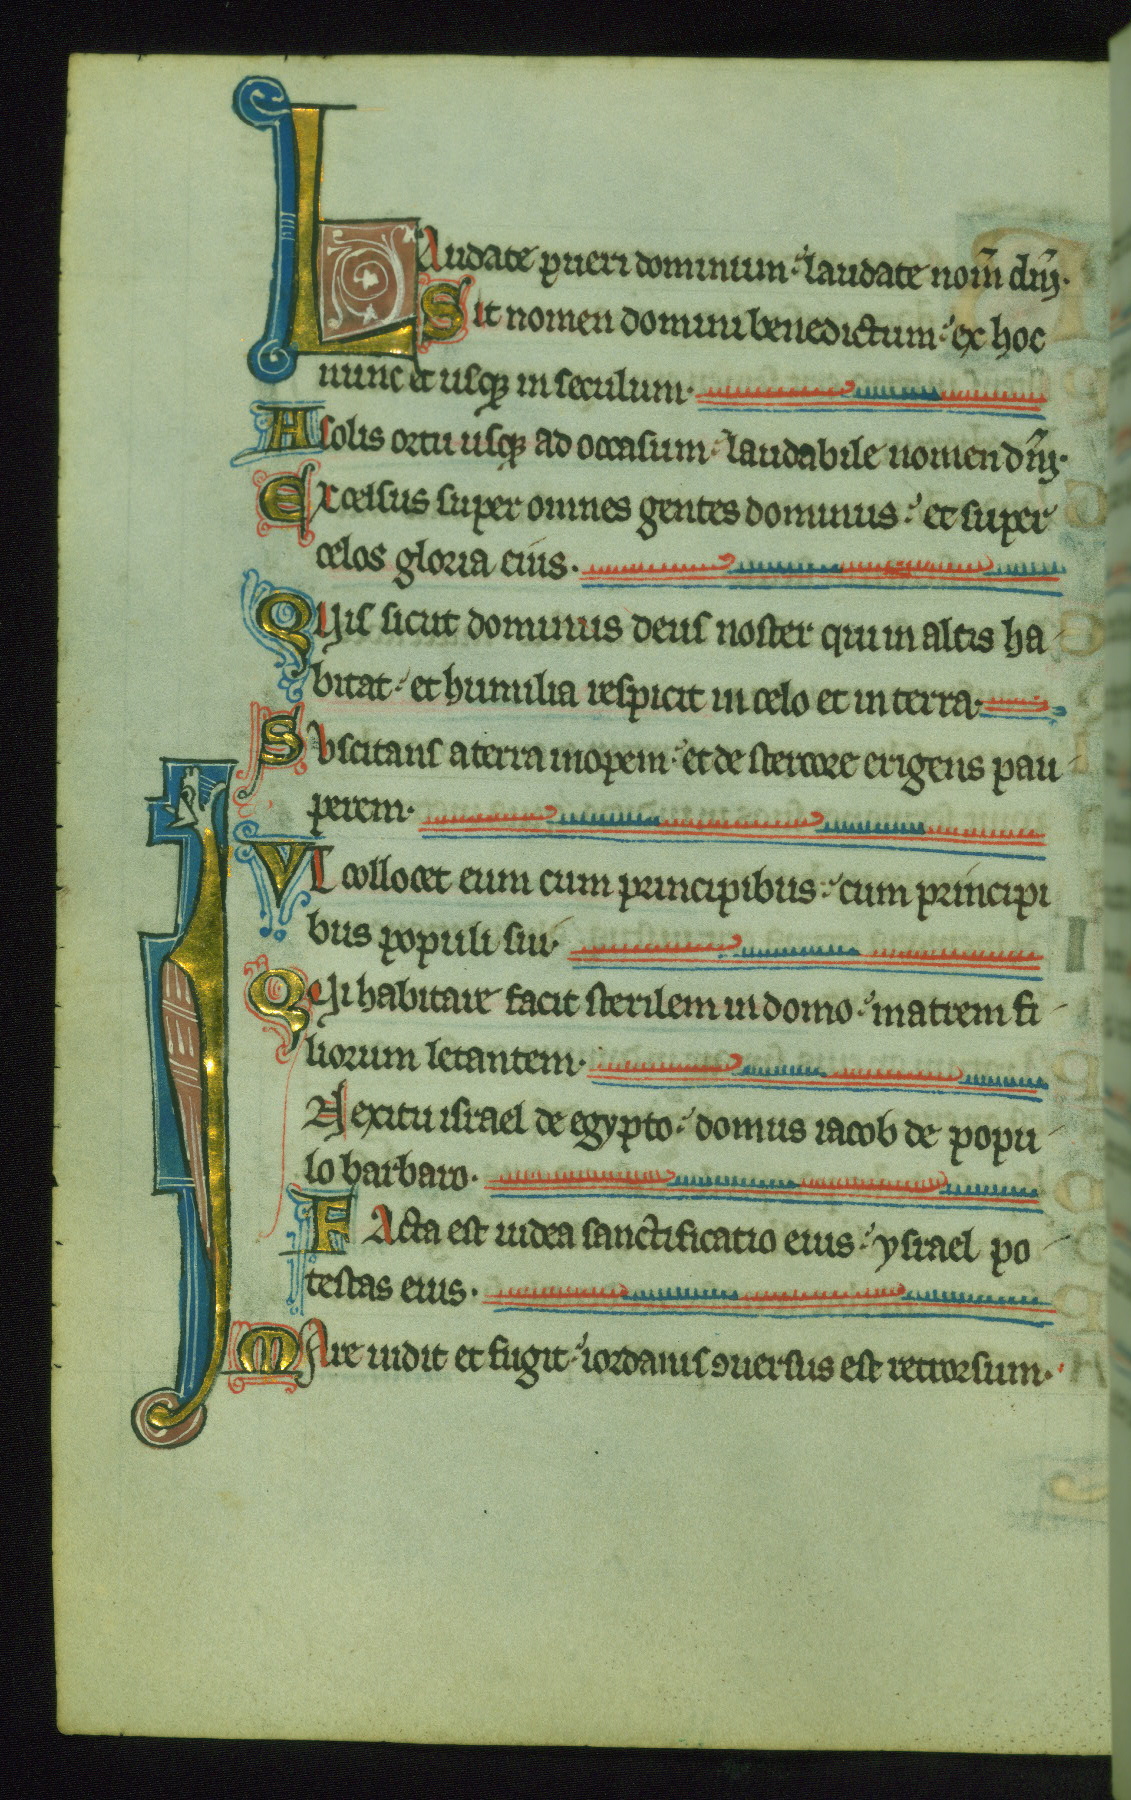 LAudate pueri dominum: laudate nom̄ dn̄j.
Sit nomen domini benedictum: ex hoc
nunc et usq3 in seculum.
A solis ortu usq3 ad occasum: laudabile nomen dn̄j.
Excelsus super omnes gentes dominus: et super
celos gloria eius.
QUis sicut dominus deus noster qui in altis ha
bitat: et humilia respicit in celo et in terra.
SVscitans a terra inopem: et de stercore erigens pau
perem.
VT collocet eum cum principibus: cum principi
bus populi sui.
QUi habitare facit sterilem in domo: matrem fi
liorum letantem.
IN exitu israel de egypto: domus iacob de popu
lo barbaro.
FActa est iudea sanctificatio eius: ysrael po
testas eius.
MAre uidit et fugit: iordanis ɔuersus est retrorsum.